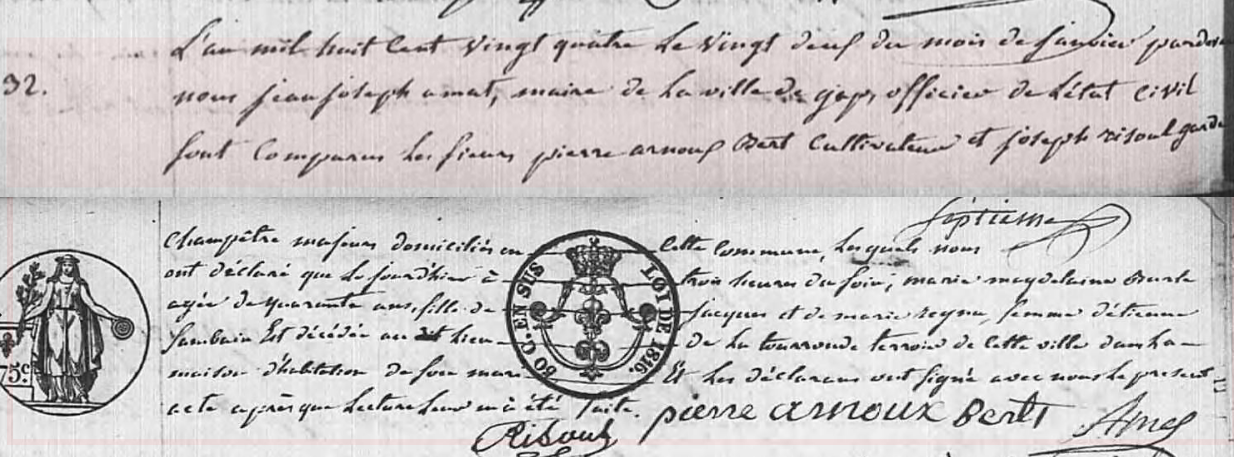 L'an mil huit cent vingt quatre le vingt deux du mois de janvier pardevant
32.
nous jean joseph amat, maire de la ville de gap, officier de l'état civil
sont comparus les sieurs pierre arnoux Bert cultivateur et joseph risoul garde
septieme
champêtre majeurs domiciliés en cette commune, lesquels nous
ont déclaré que le jourdhier à trois heures du soir, marie magdelaine
agée de quarante ans, fille de jacques et de marie femme d'étienne
est décédée au lieu de la tourronde terroir de cette ville dans la
maison d'habitation de son mari Et les déclarans ont signé avec nous le present
acte après que lecture leur en à été faite.
pierre arnoux Bert
Risoul
Amat
60 C. EN SUS
LOI DE 1816.
75 c.